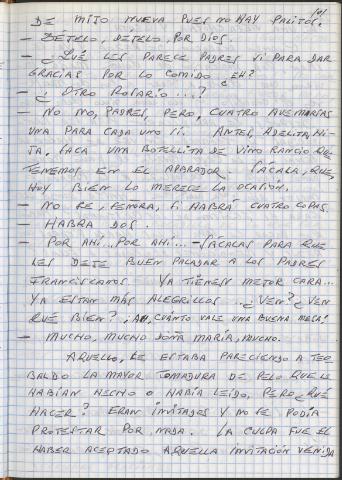 101
DE MIJO NUEVA PUES NO HAY PALITOS.
— DÉJELO, DÉJELO, POR DIOS.
— ¿QUÉ LES PARECE PADRES SI PARA DAR
GRACIAS POR LO COMIDO ¿EH?
— ¿OTRO ROSARIO...?
— NO NO, PADRES, PERO, CUATRO AVEMARÍAS
UNA PARA CADA UNO SI. ANTES, ADELITA, HI-
JA, SACA UNA BOTELLITA DE VINO RANCIO QUE
TENEMOS EN EL APARADOR. SÁCALA, QUE,
HOY BIEN LO MERECE LA OCASIÓN.
— NO SE, SEÑORA, SI HABRÁ CUATRO COPAS.
— HABRÁ DOS.
— POR AHÍ... POR AHÍ... — SÁCALAS PARA QUE
LES DEJE BUEN PALADAR A LOS PADRES
FRANCISCANOS. YA TIENEN MEJOR CARA...
YA ESTAN MÁS ALEGRILLOS... ¿VEN? ¿VEN
QUÉ BIEN? ¡AH, CUÁNTO VALE UNA BUENA MESA!
— MUCHO, MUCHO DOÑA MARÍA, MUCHO.
AQUELLO, LE ESTABA PARECIENDO A TEO-
BALDO LA MAYOR TOMADURA DE PELO QUE LE
HABÍAN HECHO O HABÍA LEIDO, PERO ¿QUÉ
HACER? ERAN INVITADOS Y NO SE PODÍA
PROTESTAR POR NADA. LA CULPA FUE EL
HABER ACEPTADO AQUELLA INVITACIÓN VENIDA